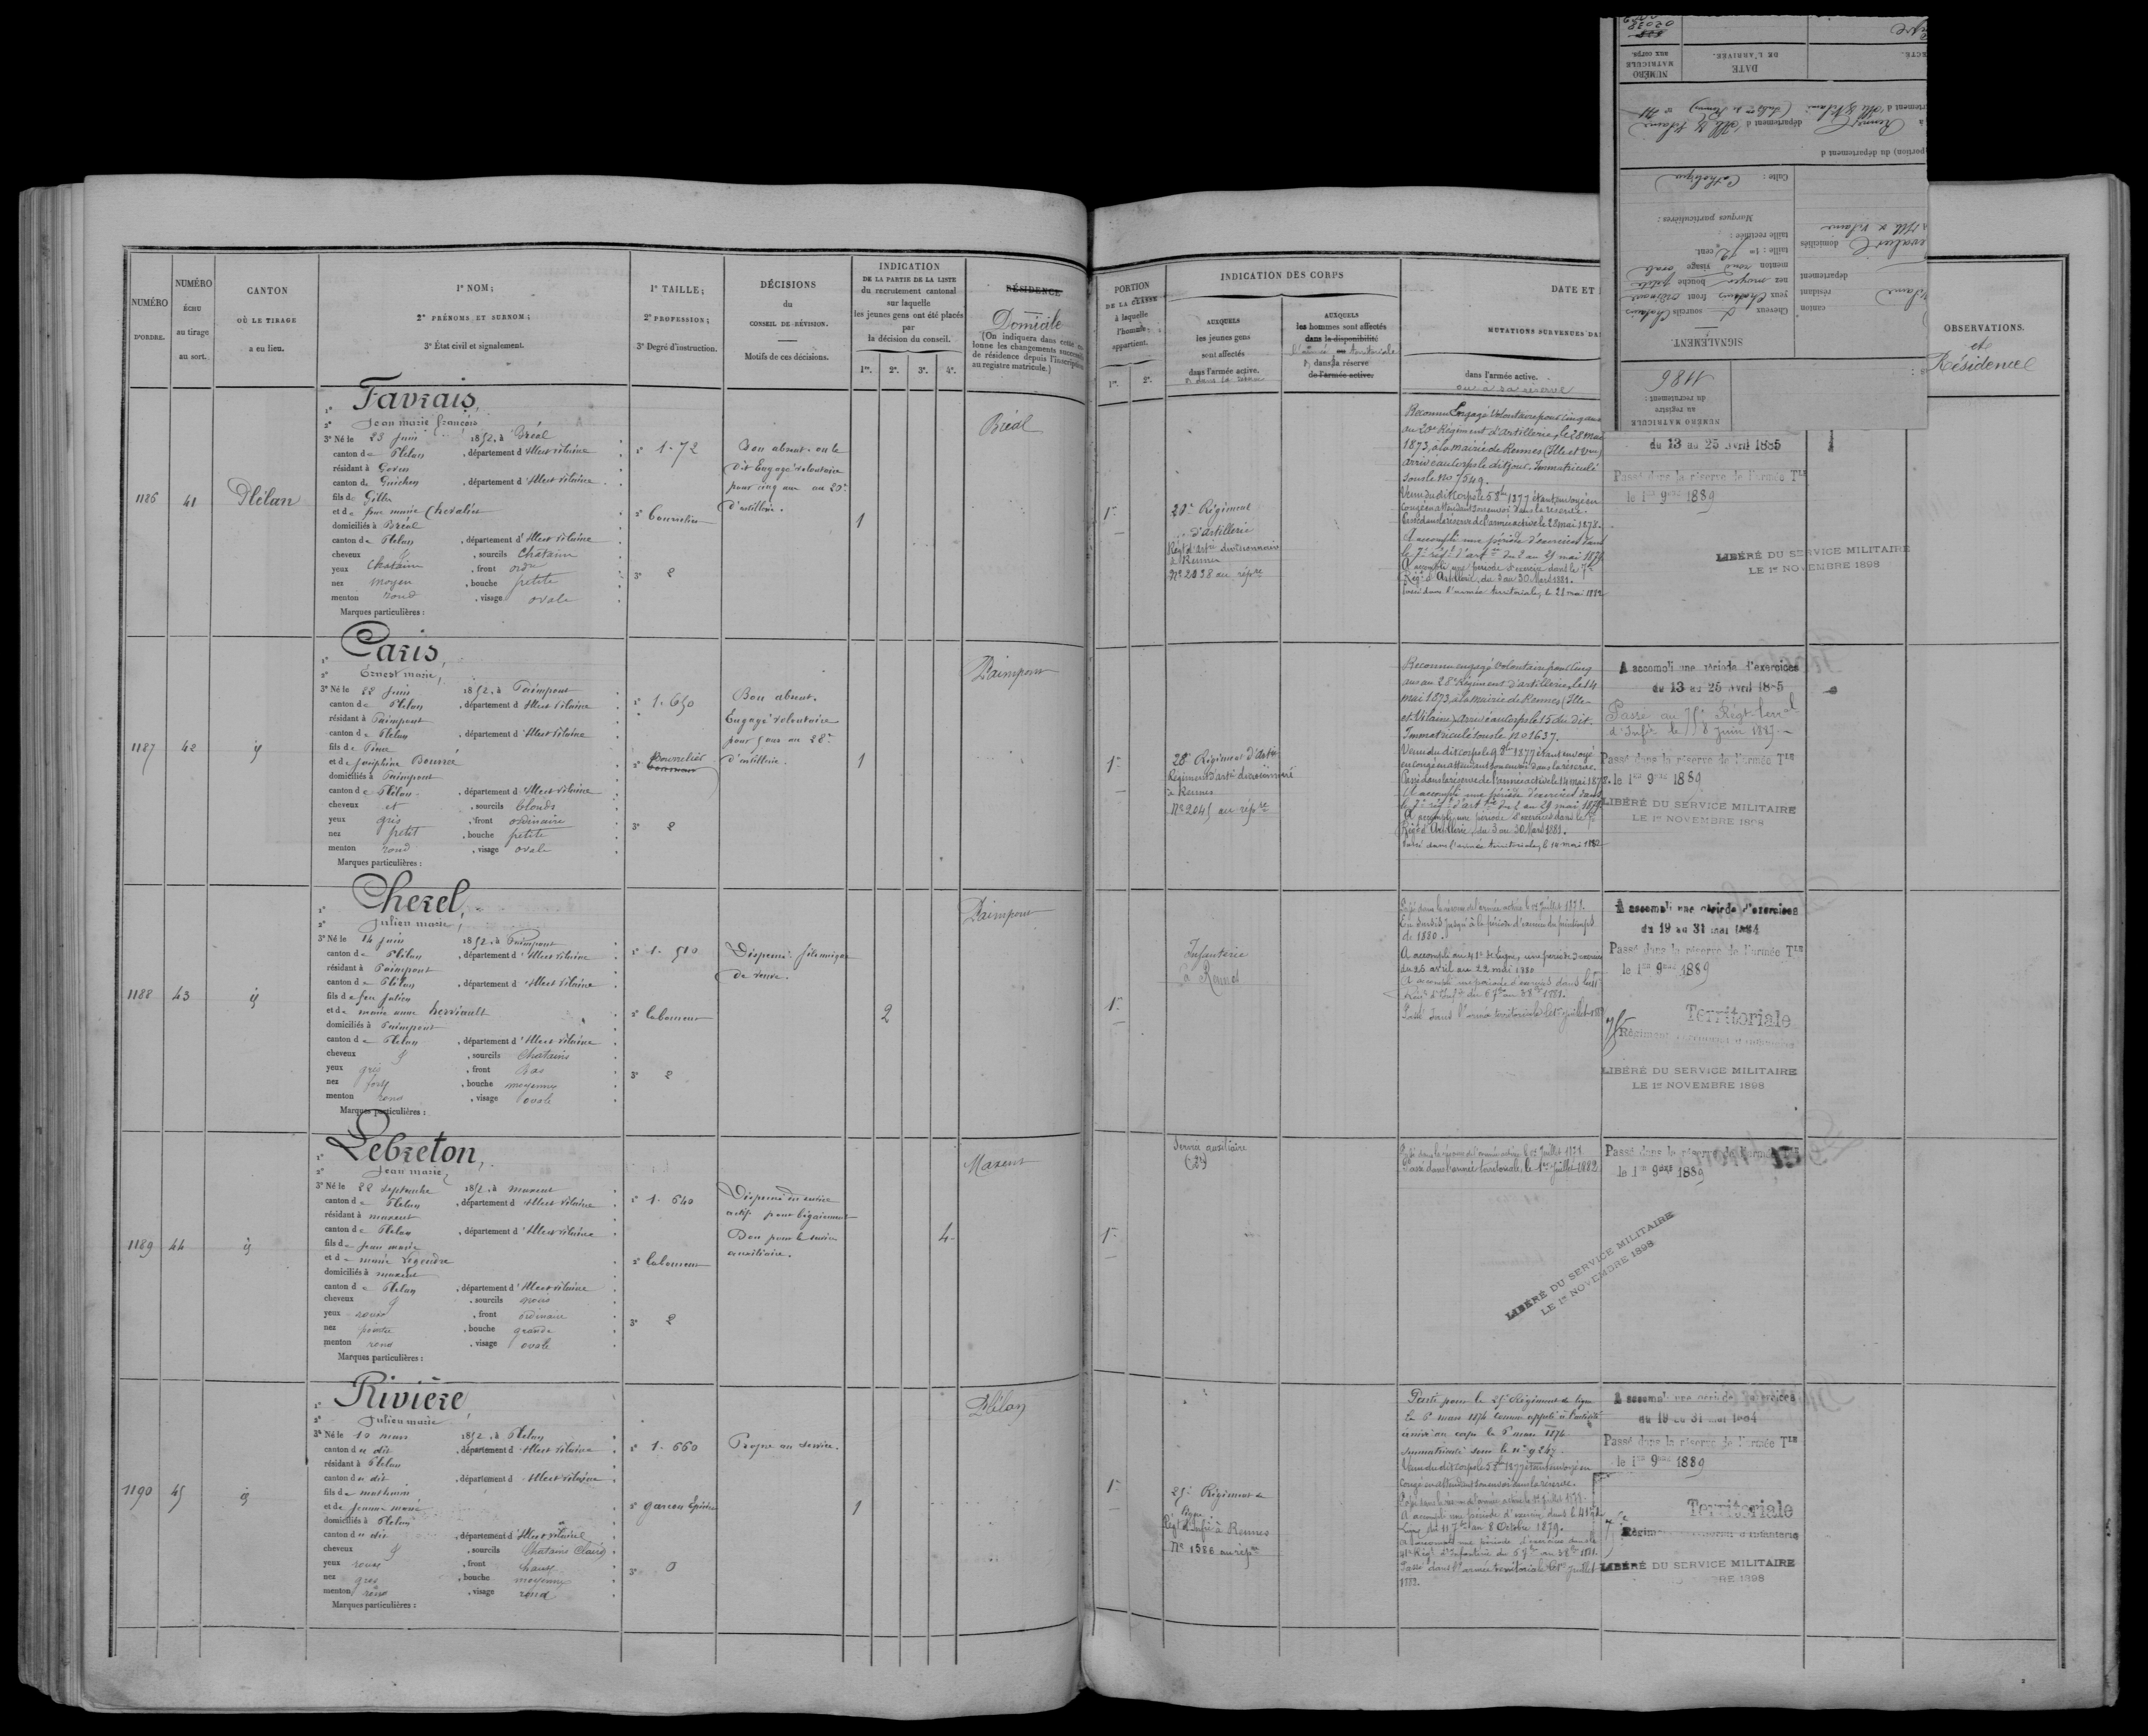 NUMÉRO D'ORDRE.
NUMÉRO échu au tirage au sort.
CANTON OÙ LE TIRAGE a eu lieu.
1° NOM;
2° PRÉNOMS ET SURNOM;
3° État civil et signalement.
1° TAILLE;
2° PROFESSION;
3° Degré d'instruction.
DÉCISIONS
du
CONSEIL DE RÉVISION.
Motifs de ces décisions.
INDICATION
DE LA PARTIE DE LA LISTE
du recrutement cantonal
sur laquelle
les jeunes gens ont été placés
par
la décision du conseil.
1re. 2e. 3e. 4e.
RÉSIDENCE
Domicile
(On indiquera dans cette co-
lonne les changements successifs
de résidence depuis l'inscription
au registre matricule.)
1186
41
Plélan
Favrais,
Jean marie françois
3° Né le 23 Juin 1852, à Bréal
canton de Plélan, département d'Ille et Vilaine
résidant à Goven
canton de Guichen, département d'Ille et Vilaine
fils de Gilles
et de feue marie Chevalier
domiciliés à Bréal
canton de Plélan, département d'Ille et Vilaine
cheveux y, sourcils Chatains
yeux Chatains, front ordre
nez moyen, bouche petite
menton rond, visage ovale
Marques particulières :
1° 1.72
2° bourrelier
3° 2
Bon absent. on le
dit Engagé volontaire
pour cinq ans au 20e
d'artillerie.
1
Bréal
1187
42
id
Paris,
Ernest marie,
3° Né le 22 Juin 1852, à Paimpont
canton de Plélan, département d'Ille et Vilaine
résidant à Paimpont
canton de Plélan, département d'Ille et Vilaine
fils de Pierre
et de Joséphine Bourrée
domiciliés à Paimpont
canton de Plélan, département d'Ille et Vilaine
cheveux et, sourcils blonds
yeux gris, front ordinaire
nez petit, bouche petite
menton rond, visage ovale
Marques particulières :
1° 1.650
2° Bourrelier
3° 2
Bon absent.
Engagé volontaire
pour 5 ans au 28e
d'artillerie.
1
Paimpont
1188
43
id
Cherel,
Julien marie,
3° Né le 14 Juin 1852, à Paimpont
canton de Plélan, département d'Ille et Vilaine
résidant à Paimpont
canton de Plélan, département d'Ille et Vilaine
fils de feu Julien
et de marie anne herviault
domiciliés à Paimpont
canton de Plélan, département d'Ille et Vilaine
cheveux y, sourcils Chatains
yeux gris, front bas
nez fort, bouche moyenne
menton rond, visage ovale
Marques particulières :
1° 1.510
2° laboureur
3° 2
Dispensé. fils unique
de veuve.
2
Paimpont
1189
44
id
Lebreton,
Jean marie,
3° Né le 22 septembre 1852, à maxent
canton de Plélan, département d'Ille et Vilaine
résidant à maxent
canton de Plélan, département d'Ille et Vilaine
fils de jean marie
et de marie Legendre
domiciliés à maxent
canton de Plélan, département d'Ille et Vilaine
cheveux y, sourcils noirs
yeux roux, front ordinaire
nez pointu, bouche grande
menton rond, visage ovale
Marques particulières :
1° 1.640
2° laboureur
3° 2
Dispensé du service
actif pour bégaiement
Bon pour le service
auxiliaire.
4
Maxent
1190
45
id
Rivière,
Julien marie
3° Né le 10 mars 1852, à Plélan
canton du dit, département d'Ille et Vilaine
résidant à Plélan
canton du dit, département d'Ille et Vilaine
fils de mathurin
et de Jeanne
domiciliés à Plélan
canton du dit, département d'Ille et Vilaine
cheveux y, sourcils Chatains Clairs
yeux roux, front haut
nez gros, bouche moyenne
menton rond, visage rond
Marques particulières :
1° 1.660
2° garçon Epicier
3° 0
Propre au service.
1
Plélan
PORTION
DE LA CLASSE
à laquelle
l'homme
appartient.
1re. 2e.
INDICATION DES CORPS
AUXQUELS
les jeunes gens
sont affectés
dans l'armée active.
AUXQUELS
les hommes sont affectés
dans la disponibilité
dans la réserve
de l'armée active.
DATE ET
MUTATIONS SURVENUES DA
dans l'armée active.
ou à sa réserve
OBSERVATIONS.
et
Résidence
NUMÉRO MATRICULE
au registre
du recrutement :
1186
SIGNALEMENT.
Cheveux sourcils Chatains
yeux Chatains front ordinaire
nez moyen bouche petite
menton rond visage ovale
taille : 1m 72 cent.
taille rectifiée :
Marques particulières :
Culte : Catholique
canton
résidant
département
domiciliés
(portion) du département d
à Rennes département d'Ille & Vilaine
NUMÉRO
MATRICULE
aux corps.
DATE
DE L'ARRIVÉE.
1re
20e Régiment
d'artillerie
Régt d'artie divisionnaire
à Rennes
No 2038 au répre
Reconnu Engagé Volontaire pour cinq ans
au 20e Régiment d'artillerie, le 28 mai
1873, à la mairie de Rennes (Ille et Vne)
arrivé au Corps le dit jour. Immatriculé
sous le No 7549.
Venu du dit Corps le 5 8bre 1877 étant envoyé en
congé en attendant son envoi dans la réserve.
Passé dans la réserve de l'armée active le 28 mai 1878.
A accompli une période d'exercices dans
le 7e régt d'artie du 2 au 29 mai 1879.
A accompli une période d'exercice dans le 7e
Régt d'Artillerie, du 3 au 30 Mars 1881.
Passé dans l'armée territoriale, le 28 mai 1882
du 13 au 25 Avril 1885
Passé dans la réserve de l'armée Tle
le 1er 9bre 1889
LIBÉRÉ DU SERVICE MILITAIRE
LE 1er NOVEMBRE 1898
1re
28e Régiment d'Artie
Régiment d'artie divisionnaire
à Rennes
No 2045 au répre
Reconnu engagé Volontaire pour Cinq
ans au 28e Régiment d'artillerie, le 14
mai 1873, à la mairie de Rennes (Ille
et Vilaine) arrivé au Corps le 15 du dit.
Immatriculé sous le No 1637.
Venu du dit Corps le 9 8bre 1877 étant envoyé
en congé en attendant son envoi dans la réserve.
Passé dans la réserve de l'armée active le 14 mai 1878.
A accompli une période d'exercices dans
le 7e régt d'artie du 2 au 29 mai 1879.
A accompli une période d'exercices dans le 7e
Régt d'Artillerie, du 3 au 30 Mars 1881.
Passé dans l'armée territoriale, le 14 mai 1882
A accompli une période d'exercices
du 13 au 25 Avril 1885
Passé au 75e Régt terral
d'Infie le 8 Juin 1887
Passé dans la réserve de l'armée Tle
le 1er 9bre 1889
LIBÉRÉ DU SERVICE MILITAIRE
LE 1er NOVEMBRE 1898
1re
Infanterie
à Rennes
Passé dans la réserve de l'armée active le 1er Juillet 1878.
En sursis jusqu'à la période d'exercices du printemps
de 1880.
A accompli au 41e de ligne, une période d'exercices
du 25 avril au 22 mai 1880
A accompli une période d'exercices dans le 41e
Passé dans l'armée territoriale le 1er Juillet 1882
A accompli une période d'exercices
du 19 au 31 mai 1884
Passé dans la réserve de l'armée Tle
le 1er 9bre 1889
Territoriale
75e Régiment territorial d'infanterie
LIBÉRÉ DU SERVICE MILITAIRE
LE 1er NOVEMBRE 1898
1re
Service auxiliaire
Passé dans la réserve de l'armée active le 1er Juillet 1878.
Passé dans l'armée territoriale, le 1er Juillet 1882
Passé dans la réserve de l'armée Tle
le 1er 9bre 1889
LIBÉRÉ DU SERVICE MILITAIRE
LE 1er NOVEMBRE 1898
1re
25e Régiment de
ligne
Régt d'Infie à Rennes
No 1586 au répre
Parti pour le 25e Régiment de ligne
le 6 mars 1874 comme appelé à l'activité
arrivé au corps le 6 mars 1874
immatriculé sous le no 9247
Venu du dit Corps le 5 8bre 1877 étant envoyé en
Congé en attendant son envoi dans la réserve.
Passé dans la réserve de l'armée active le 1er Juillet 1878.
A accompli une période d'exercice dans le 41e de
Ligne du 11 7bre au 8 Octobre 1879.
Passé dans l'armée territoriale le 1er Juillet
1882.
A accompli une période d'exercices
du 19 au 31 mai 1884
Passé dans la réserve de l'armée Tle
le 1er 9bre 1889
Territoriale
Régiment territorial d'infanterie
LIBÉRÉ DU SERVICE MILITAIRE
NOVEMBRE 1898